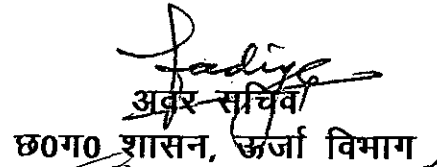 अवर सचिव
छ0ग0 शासन, ऊर्जा विभाग